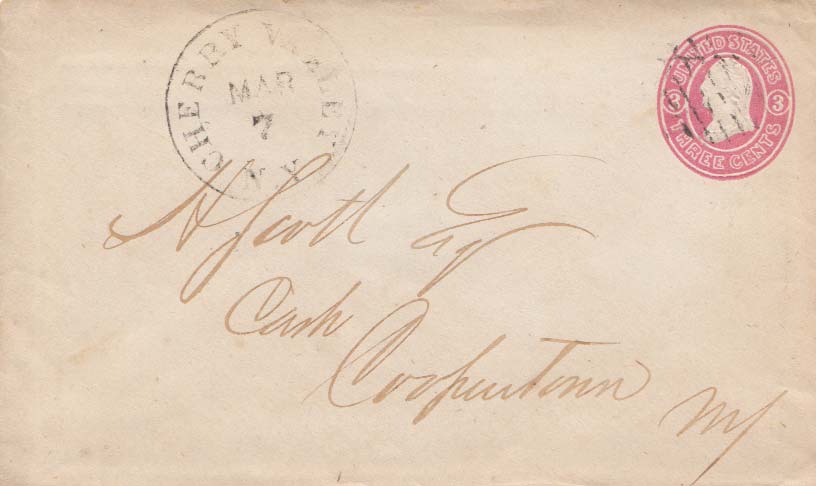 CHERRY VALLEY
MAR
7
N.Y.
UNITED STATES
3 3
THREE CENTS
H Scott Esq
Cash
Cooperstown
NY